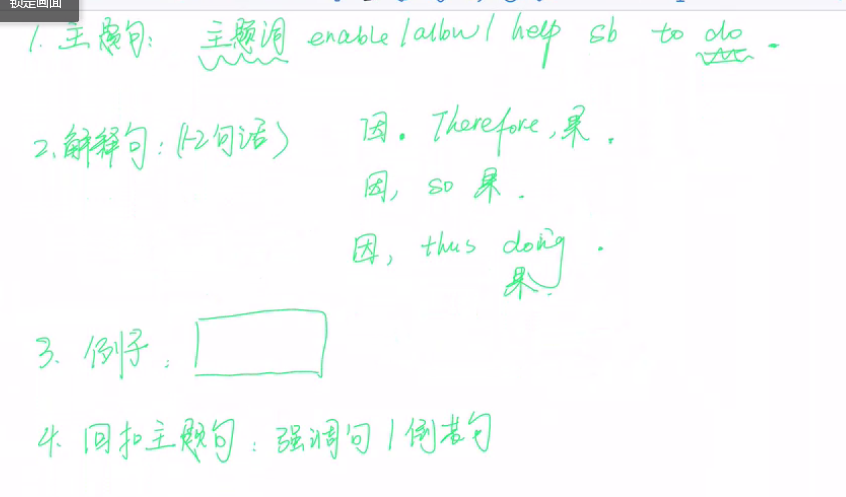 锁定画面
1. 主题句: 主题词 enable/allow/help sb to do.
2. 解释句: (1-2句话) 因. Therefore, 果.
因, so 果.
因, thus doing.
果.
3. 例子:
4. 回扣主题句: 强调句/倒装句